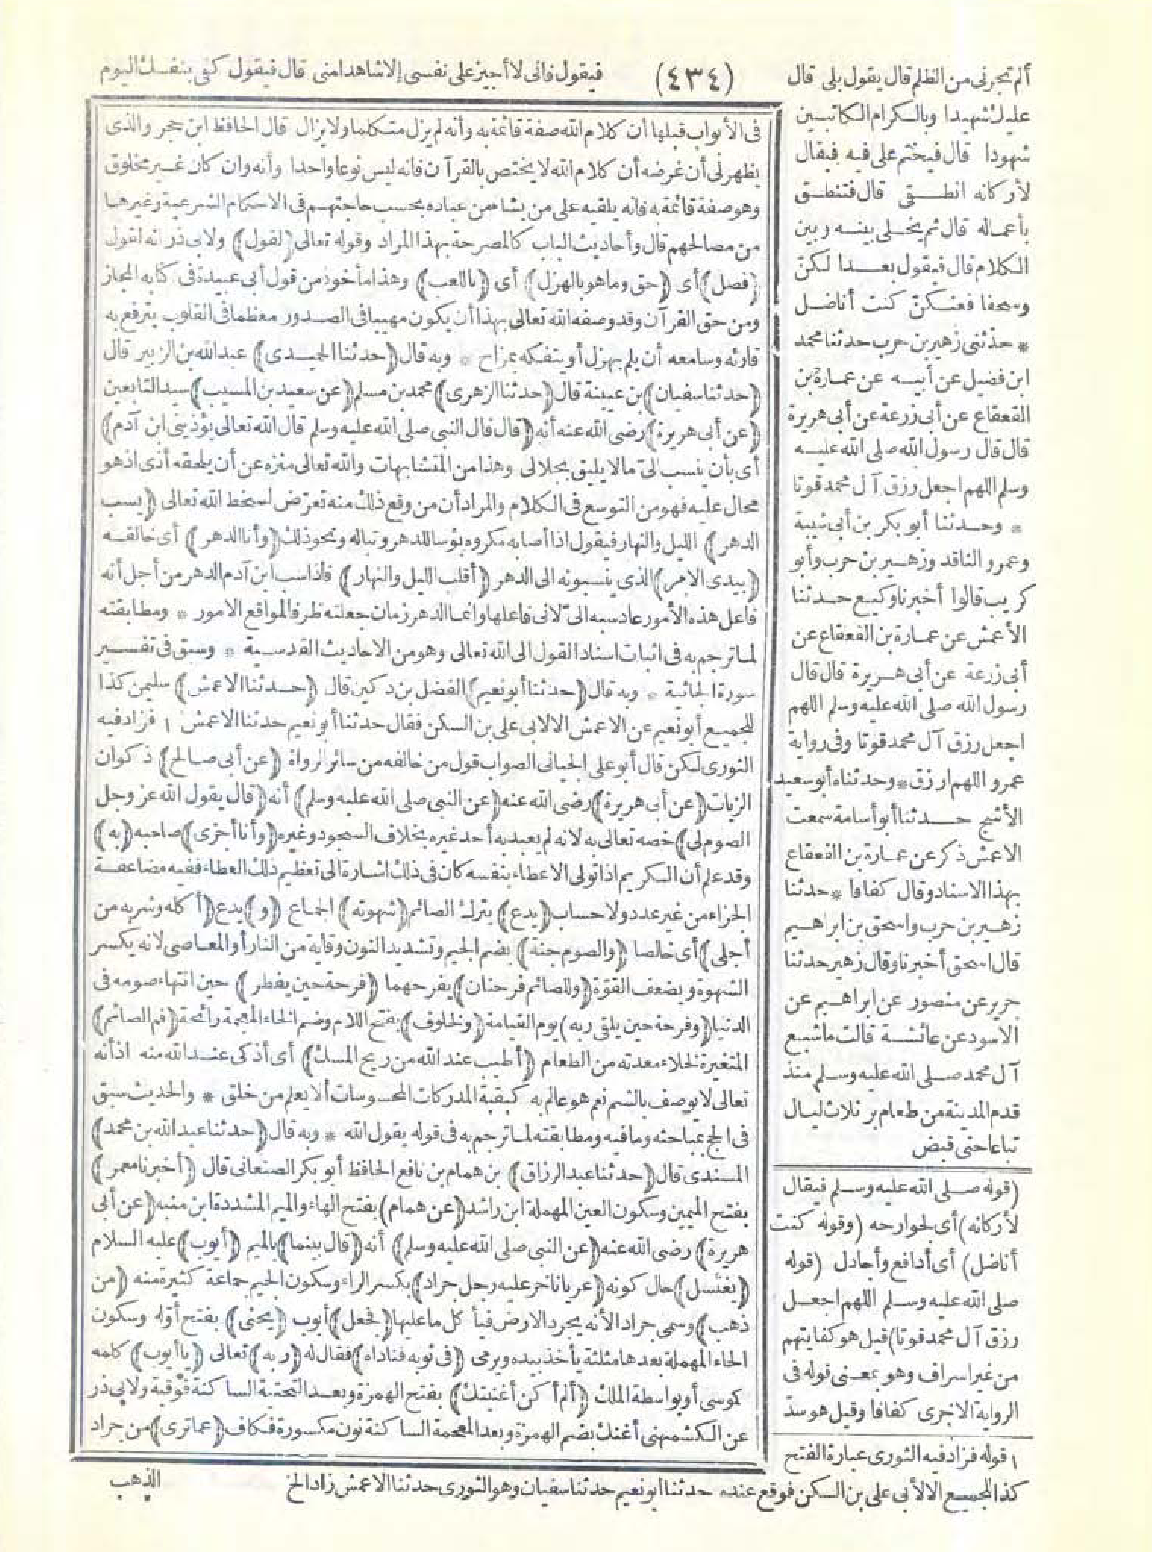 ألم تجرني من الظلم قال يقول بلى قال (٤٣٤) فيقول فاني لا أجيز على نفسي إلا شاهدا مني قال فيقول كفى بنفسك اليوم
عليك شهيدا وبالكرام الكاتبين
شهودا قال فيختم على فيه فيقال
لأركانه انطقي قال فتنطق
بأعماله قال ثم يخلى بينه وبين
الكلام قال فيقول بعدا لكن
وسحقا فعنكن كنت أناضل
* حدثني زهير بن حرب حدثنا محمد
ابن فضيل عن أبيه عن عمارة بن
القعقاع عن أبي زرعة عن أبي هريرة
قال قال رسول الله صلى الله عليه
وسلم اللهم اجعل رزق آل محمد قوتا
* وحدثنا أبو بكر بن أبي شيبة
وعمرو الناقد وزهير بن حرب وأبو
كريب قالوا أخبرنا وكيع حدثنا
الأعمش عن عمارة بن القعقاع عن
أبي زرعة عن أبي هريرة قال قال
رسول الله صلى الله عليه وسلم اللهم
اجعل رزق آل محمد قوتا وفي رواية
عمرو اللهم ارزق * وحدثناه أبو سعيد
الأشج حدثنا أبو أسامة سمعت
الاعمش ذكر عن عمارة بن القعقاع
بهذا الاسناد وقال كفافا * حدثنا
زهير بن حرب واسحق بن ابراهيم
قال اسحق أخبرنا وقال زهير حدثنا
جرير عن منصور عن ابراهيم عن
الاسود عن عائشة قالت ما شبع
آل محمد صلى الله عليه وسلم منذ
قدم المدينة من طعام بر ثلاث ليال
تباعا حتى قبض
(قوله صلى الله عليه وسلم فيقال
لأركانه) أي لجوارحه (وقوله كنت
أناضل) أي أدافع وأجادل (قوله
صلى الله عليه وسلم اللهم اجعل
رزق آل محمد قوتا) قيل هو كفايتهم
من غير اسراف وهو بمعنى قوله في
الرواية الاخرى كفافا وقيل هو سد
في الأبواب قبلها أن كلام الله صفة قائمة به وأنه لم يزل متكلما ولا يزال قال الحافظ ابن حجر والذي
يظهر لي أن غرضه أن كلام الله لا يختص بالقرآن فانه ليس نوعا واحدا وأنه وان كان غير مخلوق
وهو صفة قائمة به فانه يلقيه على من يشاء من عباده بحسب حاجتهم في الاحكام الشرعية وغيرها
من مصالحهم قال وأحاديث الباب كالمصرحة بهذا المراد وقوله تعالى (لقول) ولابي ذر انه لقول
(فصل) أي (حق وما هو بالهزل) أي (باللعب) وهذا مأخوذ من قول أبي عبيدة في كتابه المجاز
ومن حق القرآن وقد وصفه الله تعالى بهذا أن يكون مهيبا في الصدور معظما في القلوب يترفع به
قارئه وسامعه أن يلم بهزل أو يتفكه بمزاح * وبه قال (حدثنا الحميدي) عبد الله بن الزبير قال
(حدثنا سفيان) بن عيينة قال (حدثنا الزهري) محمد بن مسلم (عن سعيد بن المسيب) سيد التابعين
(عن أبي هريرة) رضي الله عنه أنه (قال قال النبي صلى الله عليه وسلم قال الله تعالى يؤذيني ابن آدم)
أي بأن ينسب الي ما لا يليق بجلالي وهذا من المتشابهات والله تعالى منزه عن أن يلحقه أذى اذ هو
محال عليه فهو من التوسع في الكلام والمراد أن من وقع ذلك منه تعرض لسخط الله تعالى (يسب
الدهر) الليل والنهار فيقول اذا أصابه مكروه بؤسا للدهر وتبا له ونحو ذلك (وأنا الدهر) أي خالقه
(بيدي الامر) الذي ينسبونه الى الدهر (أقلب الليل والنهار) فاذا سب ابن آدم الدهر من أجل أنه
فاعل هذه الأمور عاد سبه الي لاني فاعلها وانما الدهر زمان جعلته ظرفا لمواقع الامور * ومطابقته
لما ترجم به في اثبات اسناد القول الى الله تعالى وهو من الاحاديث القدسية * وسبق في تفسير
سورة الجاثية * وبه قال (حدثنا أبو نعيم) الفضل بن دكين قال (حدثنا الاعمش) سليمن كذا
للجميع أبو نعيم عن الاعمش الا لابي علي بن السكن فقال حدثنا أبو نعيم حدثنا الاعمش ١ فزاد فيه
الثوري لكن قال أبو علي الجياني الصواب قول من خالفه من سائر الرواة (عن أبي صالح) ذكوان
الزيات (عن أبي هريرة) رضي الله عنه (عن النبي صلى الله عليه وسلم) أنه (قال يقول الله عز وجل
الصوم لي) خصه تعالى به لانه لم يعبد به أحد غيره بخلاف السجود وغيره (وأنا أجزي) صاحبه (به)
وقد علم أن الكريم اذا تولى الاعطاء بنفسه كان في ذلك اشارة الى تعظيم ذلك العطاء ففيه مضاعفة
الجزاء من غير عدد ولا حساب (يدع) يترك الصائم (شهوته) الجماع (و) يدع (أكله وشربه من
أجلي) أي خالصا (والصوم جنة) بضم الجيم وتشديد النون وقاية من النار أو المعاصي لانه يكسر
الشهوة ويضعف القوة (وللصائم فرحتان) يفرحهما (فرحة حين يفطر) حين انتهاء صومه في
الدنيا (وفرحة حين يلقى ربه) يوم القيامة (ولخلوف) بفتح اللام وضم الخاء المعجمة رائحة (فم الصائم)
المتغيرة لخلاء معدته من الطعام (أطيب عند الله من ريح المسك) أي أذكى عند الله منه اذ أنه
تعالى لا يوصف بالشم نعم هو عالم به كبقية المدركات المحسوسات ألا يعلم من خلق * والحديث سبق
في الحج بمباحثه وما فيه ومطابقته لما ترجم به في قوله يقول الله * وبه قال (حدثنا عبد الله بن محمد)
المسندي قال (حدثنا عبد الرزاق) بن همام بن نافع الحافظ أبو بكر الصنعاني قال (أخبرنا معمر)
بفتح الميمين وسكون العين المهملة ابن راشد (عن همام) بفتح الهاء والميم المشددة ابن منبه (عن أبي
هريرة) رضي الله عنه (عن النبي صلى الله عليه وسلم) أنه (قال بينما) بالميم (أيوب) عليه السلام
(يغتسل) حال كونه (عريانا خر عليه رجل جراد) بكسر الراء وسكون الجيم جماعة كثيرة منه (من
ذهب) وسمي جرادا لأنه يجرد الارض فيأكل ما عليها (فجعل) أيوب (يحثي) بفتح أوله وسكون
الحاء المهملة بعدها مثلثة يأخذ بيده ويرمي (في ثوبه فناداه) فقال له (ربه) تعالى (يا أيوب) كلمه
كموسى أو بواسطة الملك (ألم أكن أغنيتك) بفتح الهمزة وبعد التحتية الساكنة فوقية ولابي ذر
عن الكشميهني أغنك بضم الهمزة وبعد المعجمة الساكنة نون مكسورة فكاف (عما ترى) من جراد
١ قوله فزاد فيه الثوري عبارة الفتح
كذا للجميع الا لأبي علي بن السكن فوقع عنده حدثنا أبو نعيم حدثنا سفيان وهو الثوري حدثنا الاعمش زاد الخ
الذهب